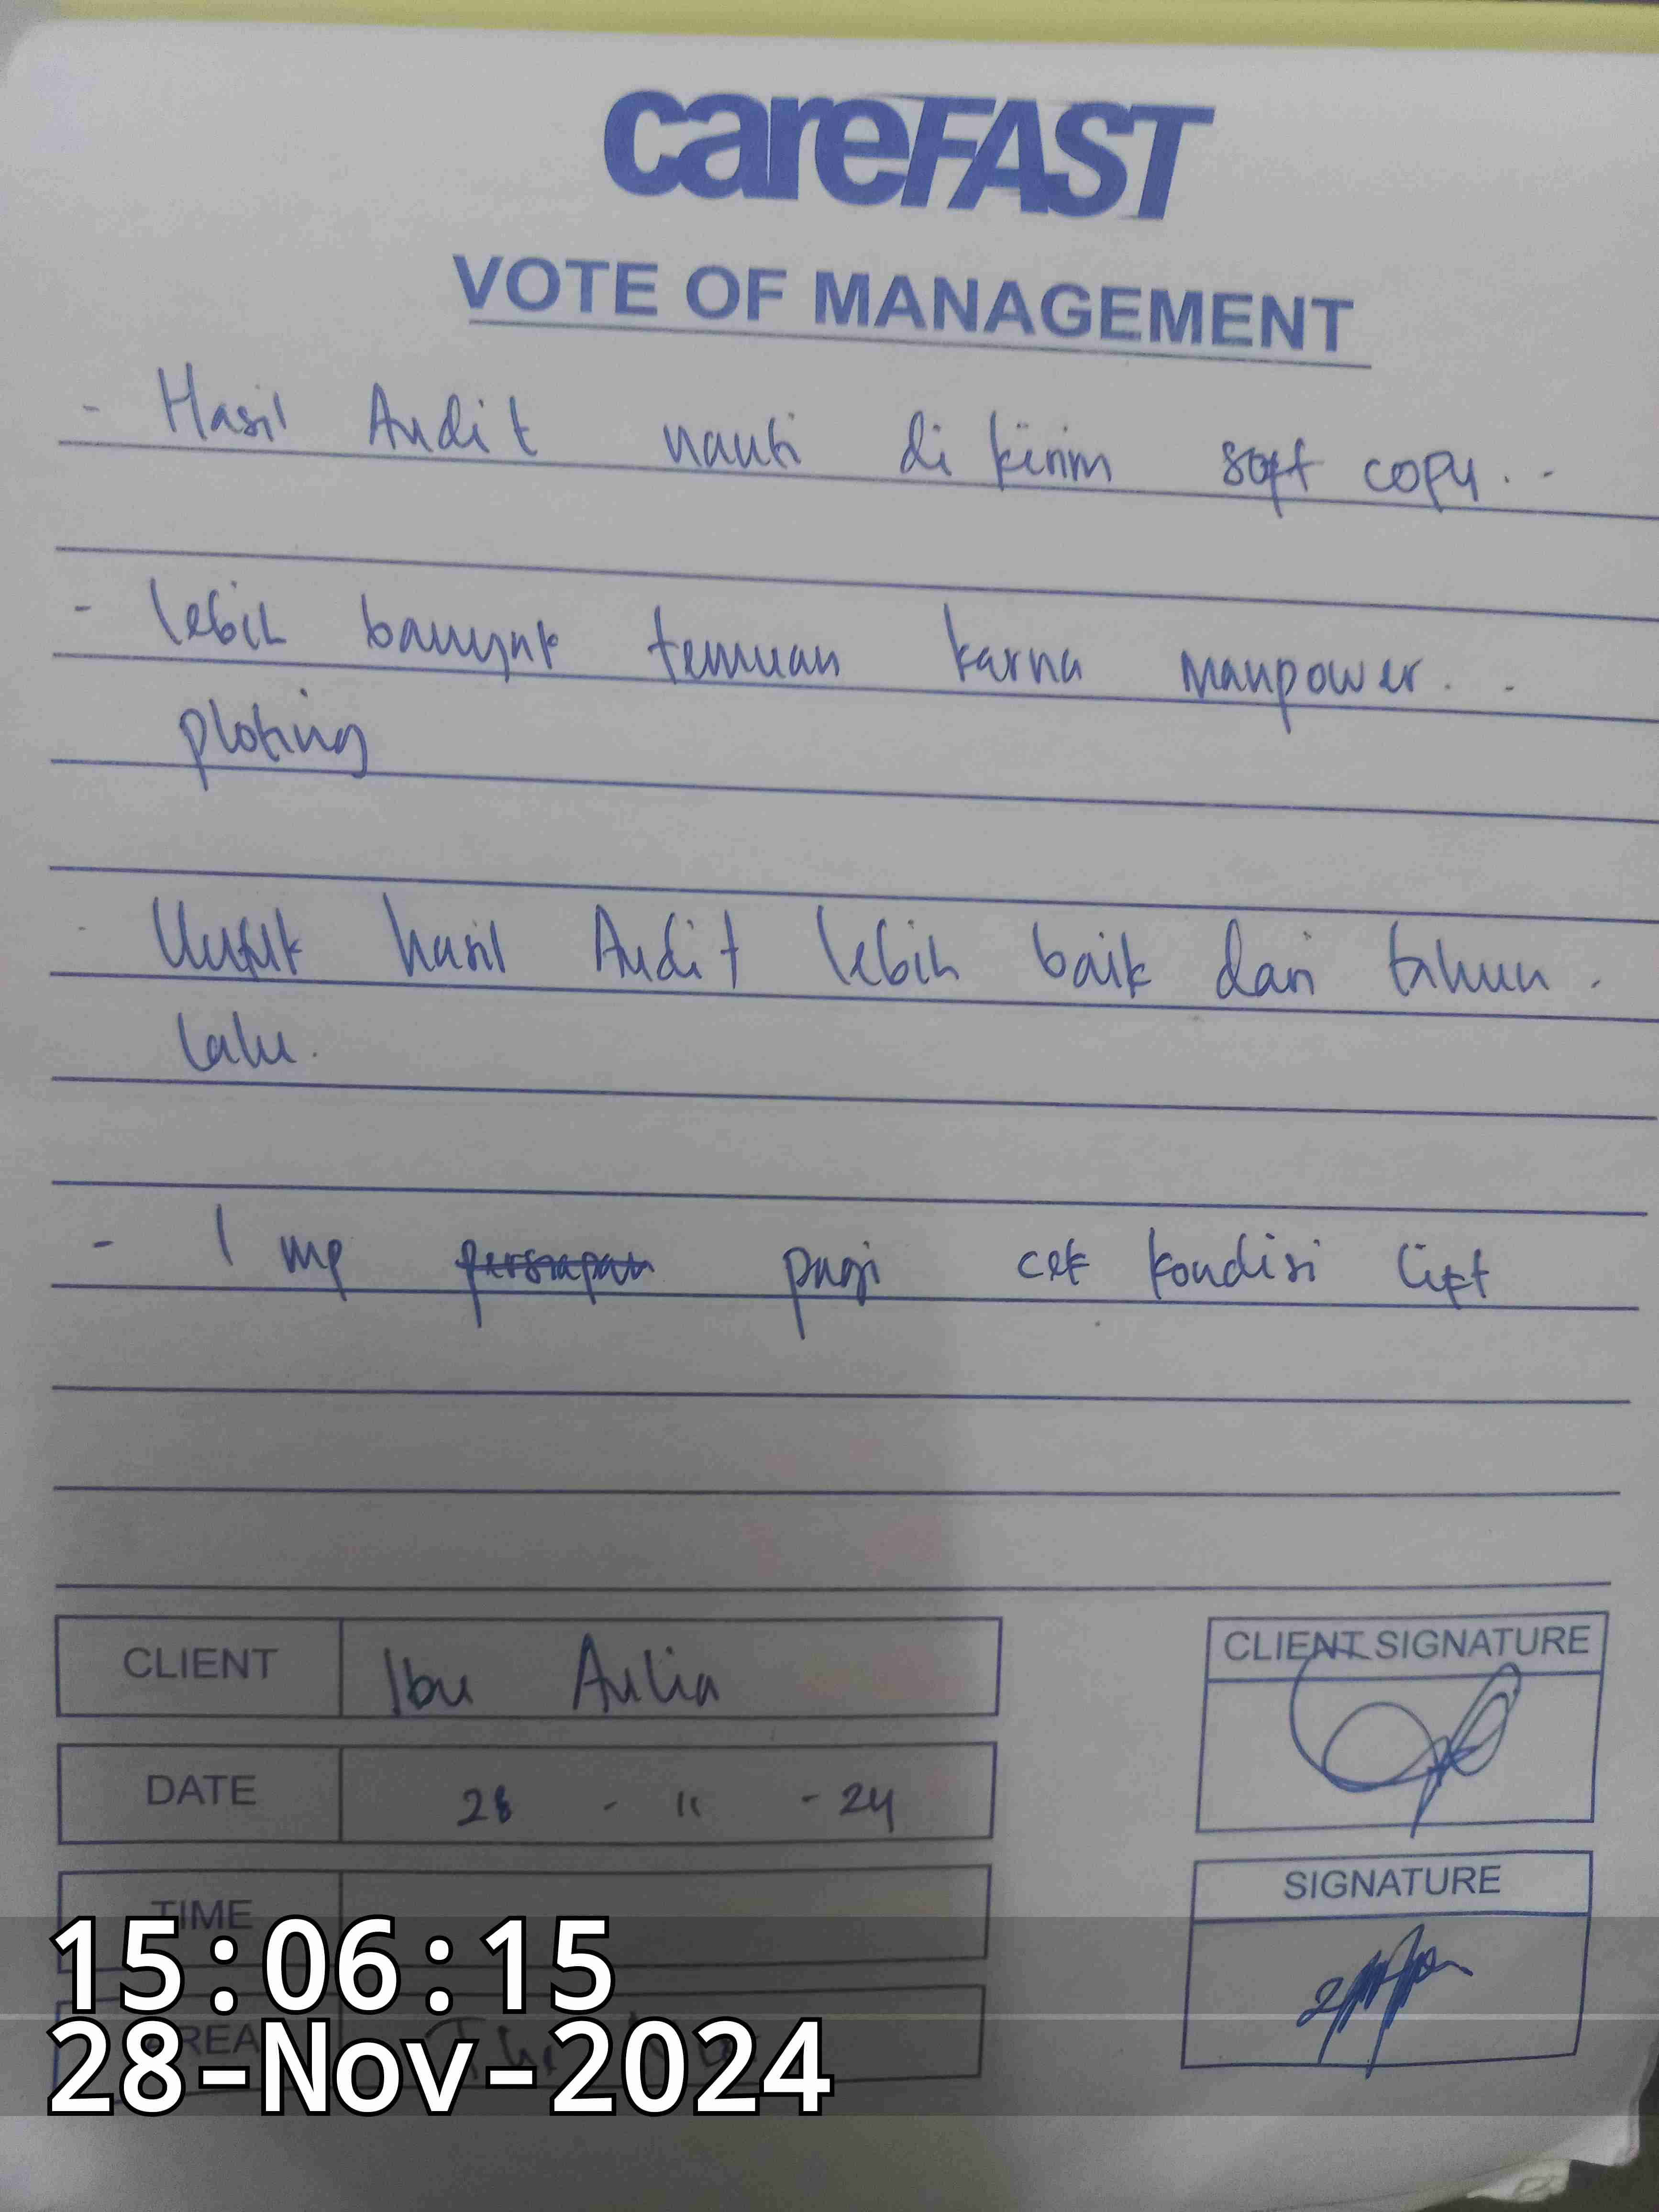 careFAST
VOTE OF MANAGEMENT
- Hasil Audit nanti di kirim soft copy. -
- lebih banyak temuan karna manpower. .
ploting
- Untuk hasil Audit lebih baik dari tahun .
lalu.
- 1 mp persiapan pagi cek kondisi lift
CLIENT Ibu Aulia
CLIENT SIGNATURE
DATE 28 - 11 - 24
TIME
SIGNATURE
15:06:15
AREA
28-Nov-2024